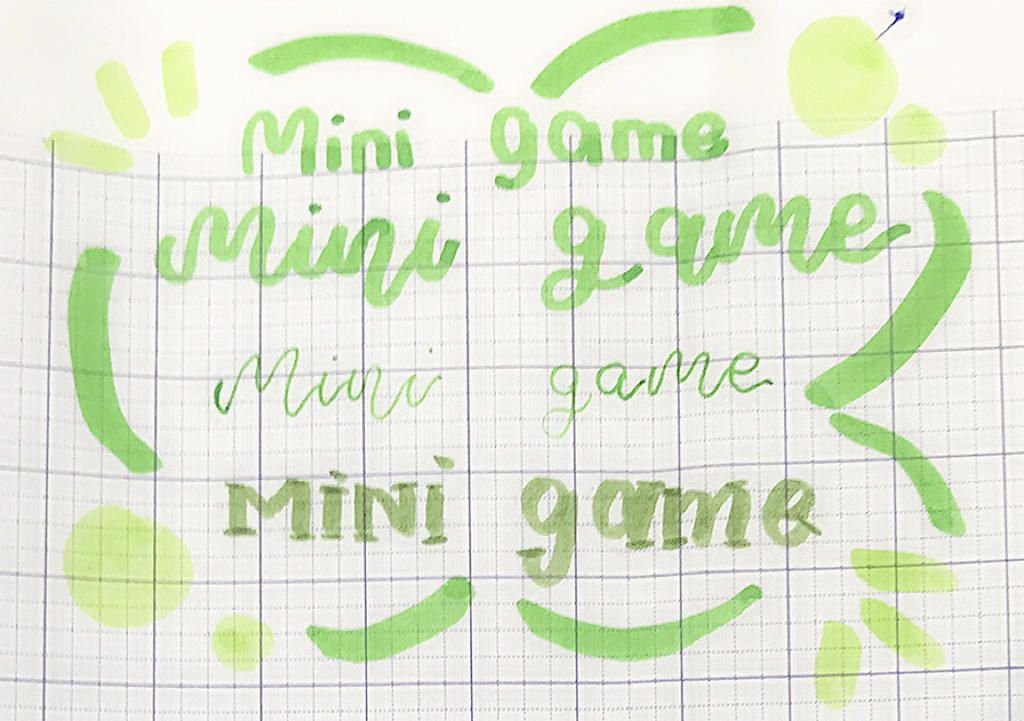 Mini game
mini game
Mini game
MiNi game